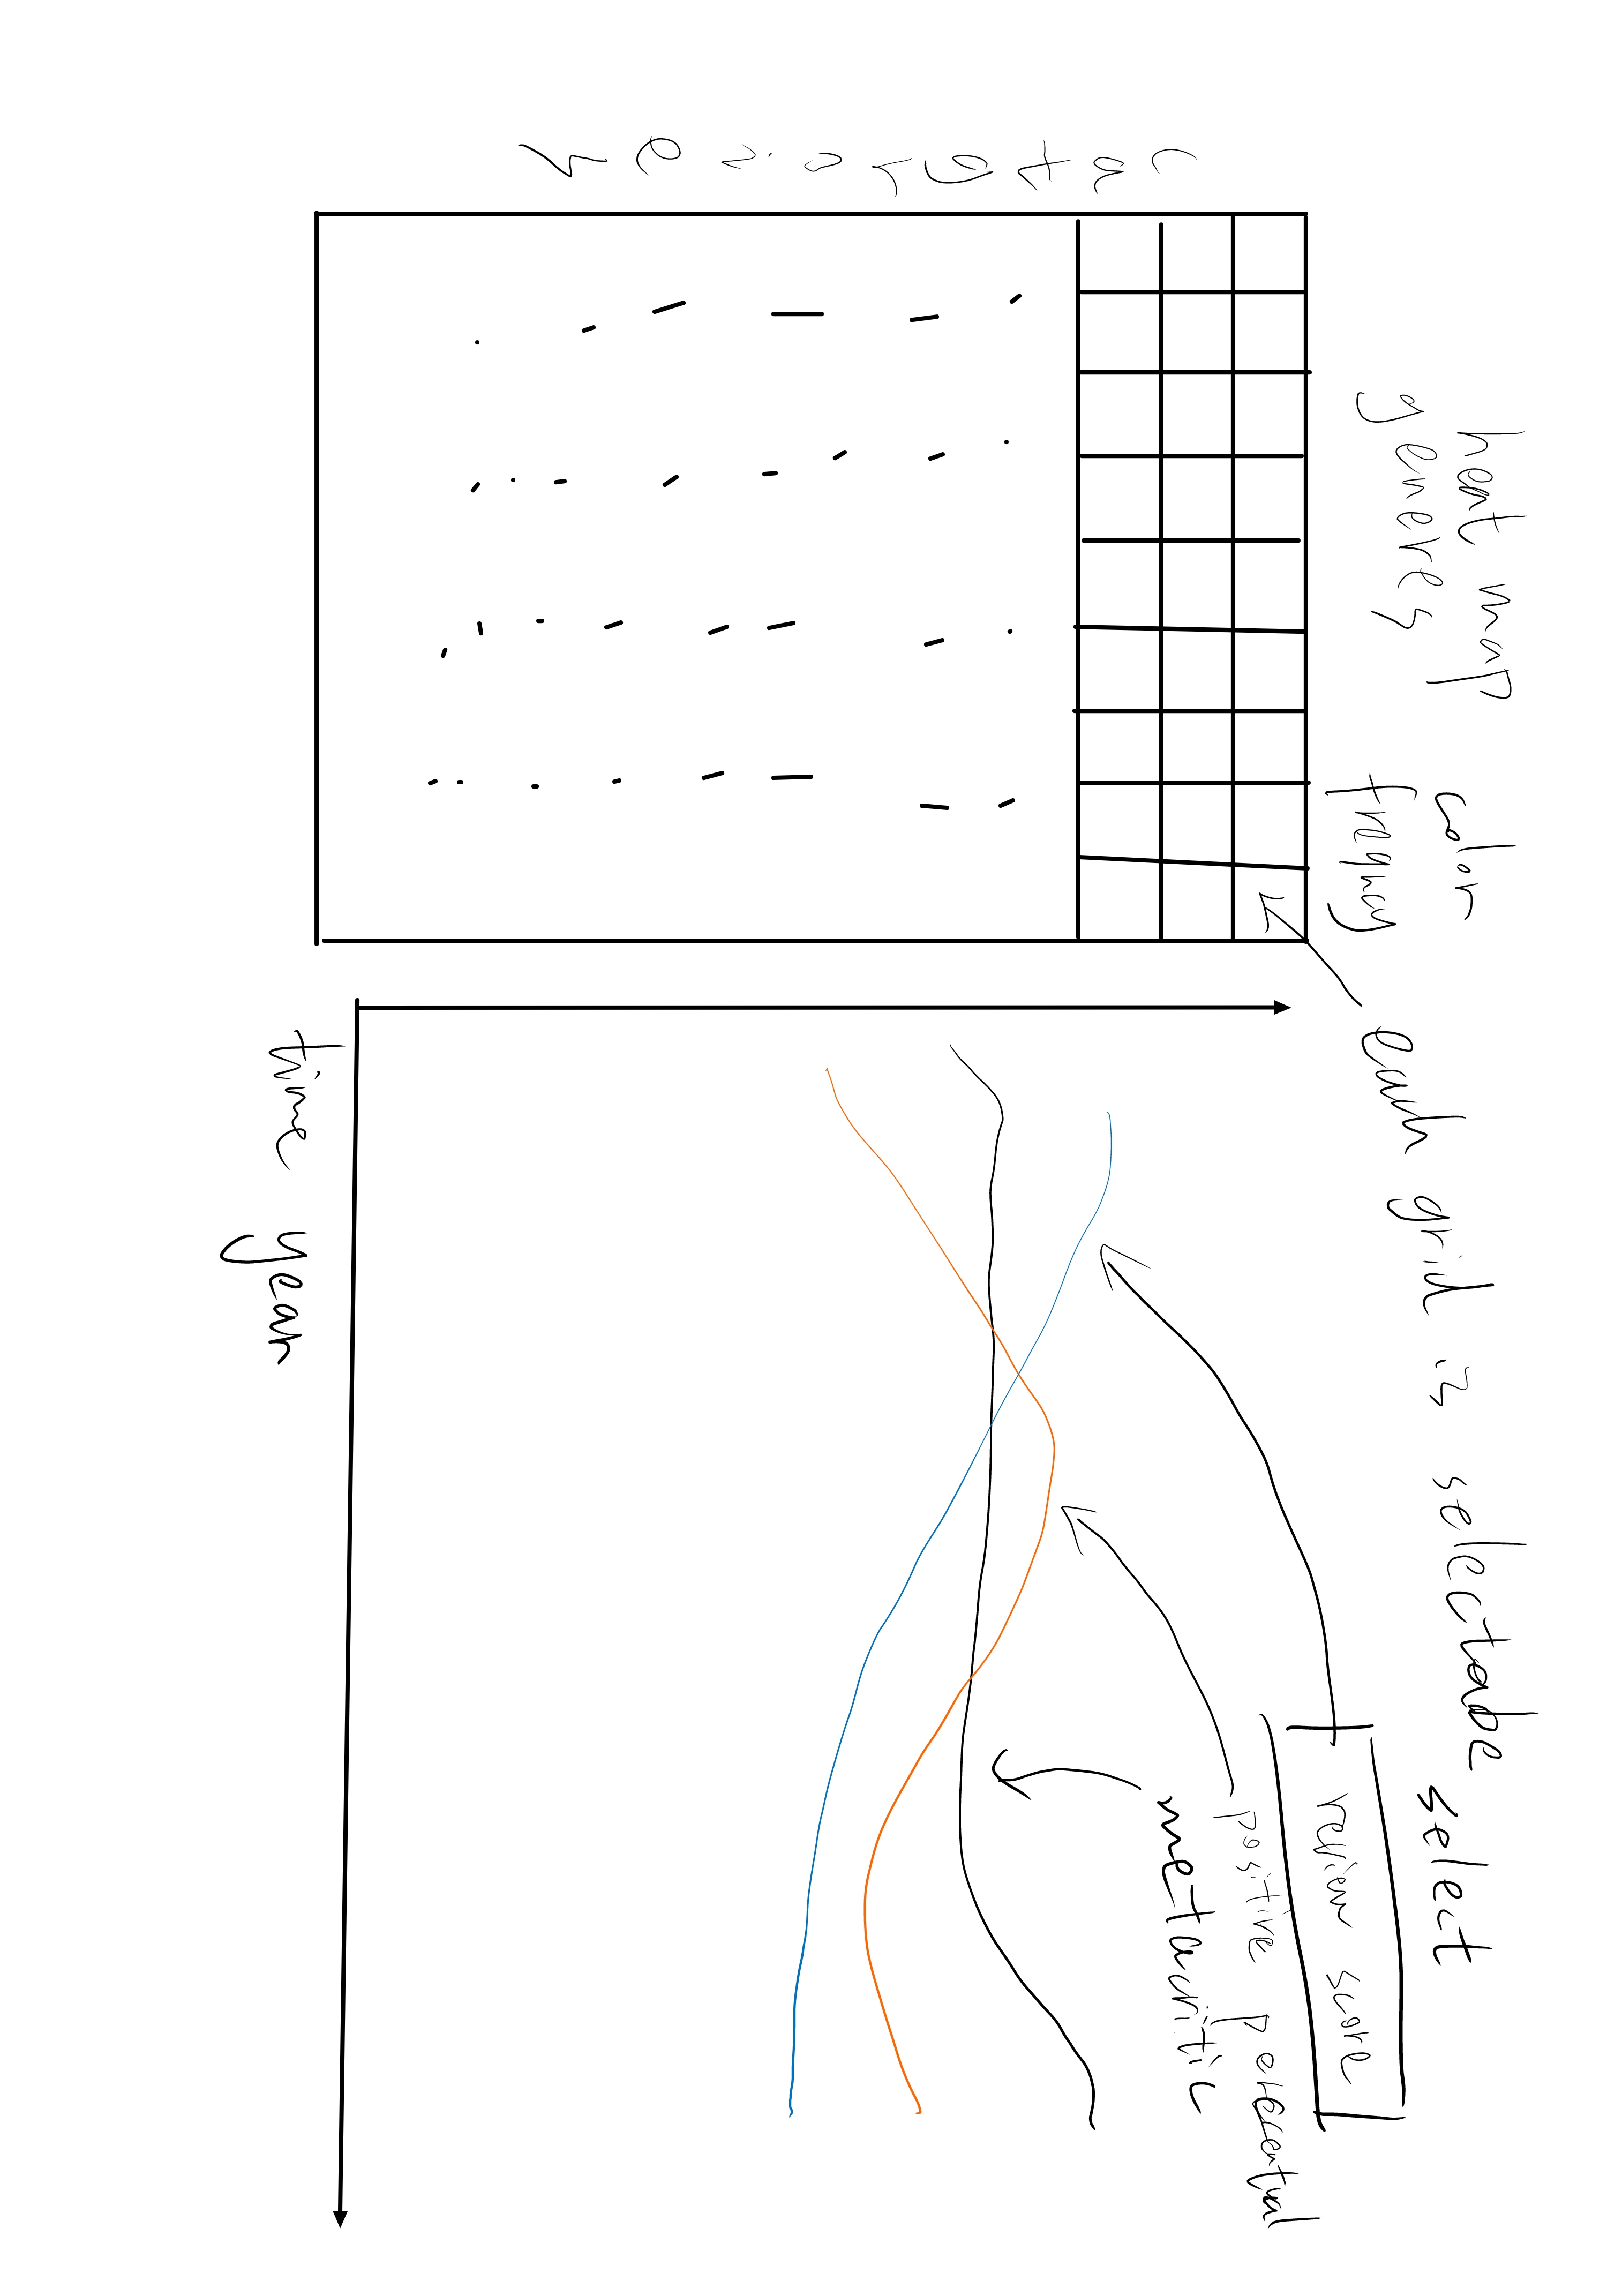 heat map
genenres
color
freqncy
each grid is selectabe
select
review score
positive
metacritic
catgories
time year